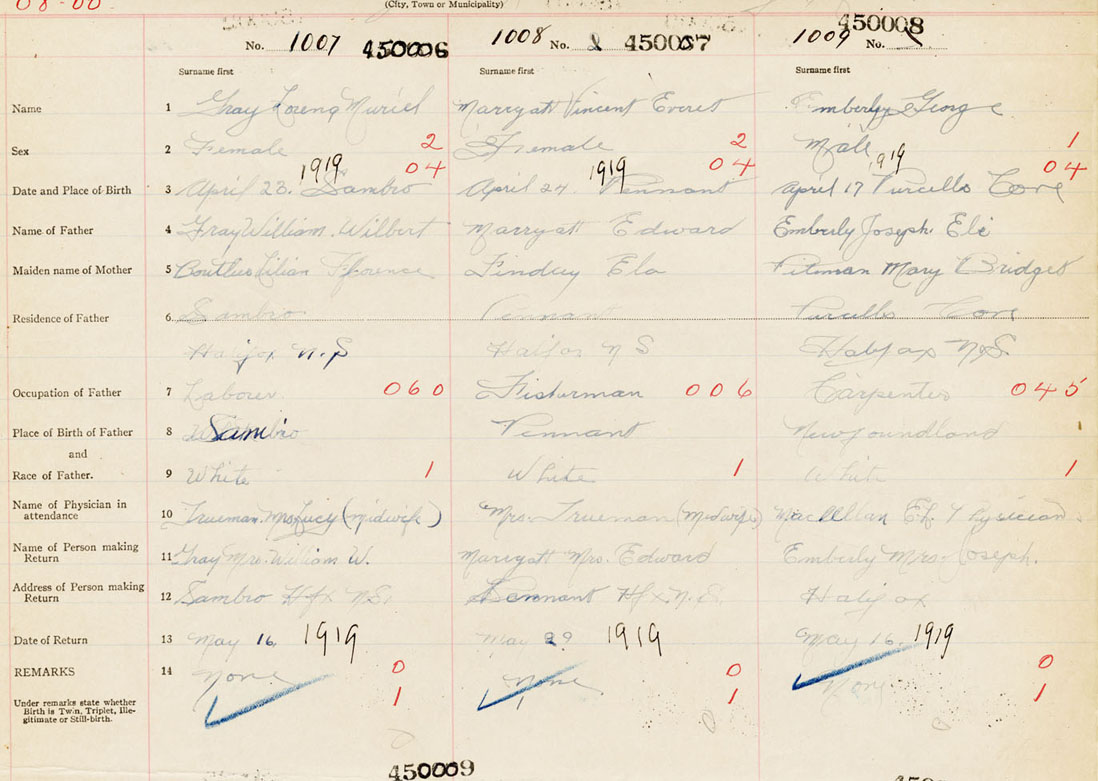 08-00
(City, Town or Municipality)
No. 1007 450006 1008 No. 450007 1009 No. 450008
Surname first Surname first Surname first
Name 1 Gray Lorena Muriel Marryatt Vincent Everet Emberly George
Sex 2 Female 2 Female 2 Male 1
1919 04 1919 04 1919 04
Date and Place of Birth 3 April 23. Sambro April 24 Pennant April 17 Purcells Cove
Name of Father 4 Gray William. Wilbert Marryatt Edward Emberly Joseph. Ele
Maiden name of Mother 5 Lilian Florence Ela Mary Bridget
Residence of Father 6 Sambro Pennant Purcells Cove
Halifax N.S Halifax N S Halifax N.S.
Occupation of Father 7 Labourer 060 Fisherman 006 Carpenter 045
Place of Birth of Father 8 Sambro Pennant Newfoundland
and
Race of Father. 9 White 1 White 1 White 1
Name of Physician in
attendance 10 Trueman. Mrs Lucy (midwife) Mrs. Trueman (Midwife) MacLellan
Name of Person making
Return 11 Gray Mrs. William W. Marryatt Mrs. Edward Emberly Mrs. Joseph.
Address of Person making
Return 12 Sambro Hfx N.S. Pennant Hfx. N.S. Halifax
Date of Return 13 May 16 1919 May 29 1919 May 16. 1919
REMARKS 14 None 0 None 0 None 0
Under remarks state whether
Birth is Twin, Triplet, Ille-
gitimate or Still-birth. 1 1 1
450009